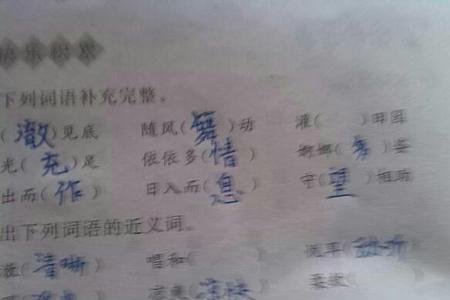 快乐积累
下列词语补充完整。
(澈)见底 随风(舞)动 灌( )田园
光(充)足 依依多(情) 婀娜(多)姿
出而(作) 日入而(息) 守(望)相助
出下列词语的近义词。
(清晰) 唱和( )